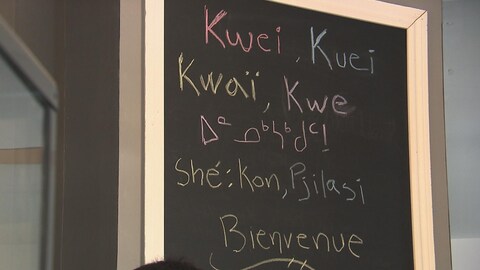 Kwei, Kuei
Kwaï, Kwe
ᐃᓐᓄᒃᓴᒃᑯᑦ!
Shé:kon, Pjilasi
Bienvenue